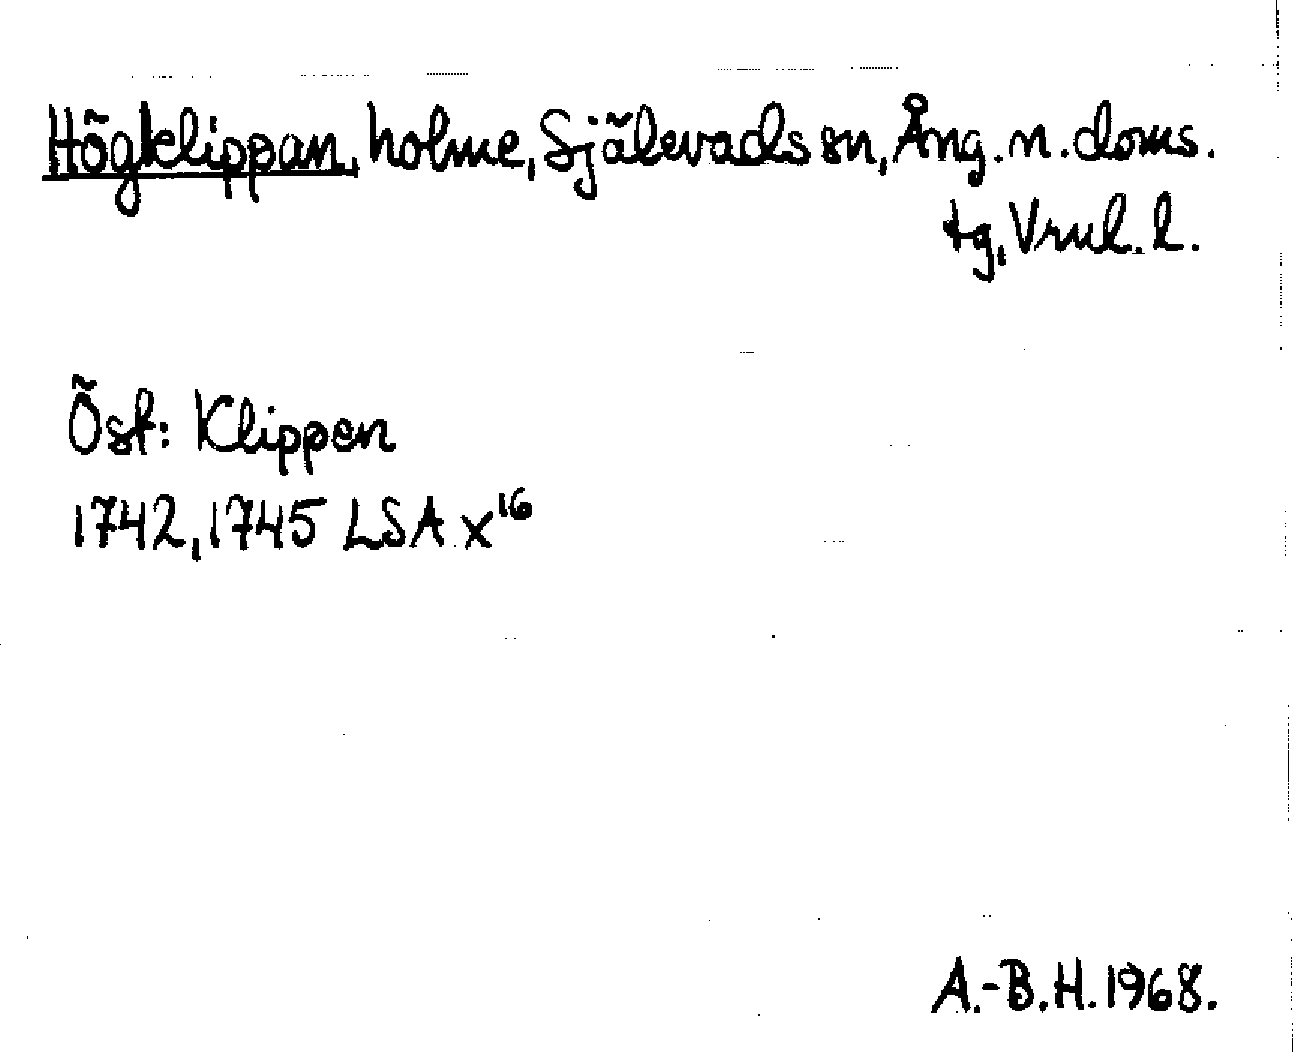 Högklippan, holme, Själevads sn, Ång. n. doms.
tg, Vrnl. l.
Öst: Klippen
1742, 1745 LSA X16
A.-B.H. 1968.